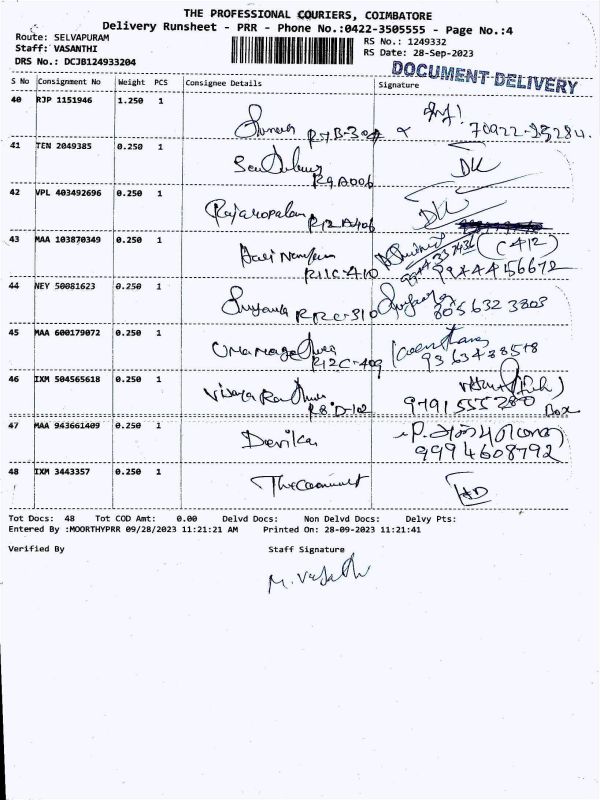 THE PROFESSIONAL COURIERS, COIMBATORE
Delivery Runsheet - PRR - Phone No.:0422-3505555 - Page No.:4
Route: SELVAPURAM
RS No.: 1249332
Staff: VASANTHI
RS Date: 28-Sep-2023
DRS No.: DCJB124933204
DOCUMENT DELIVERY
S No Consignment No Weight PCS Consignee Details Signature
40 RJP 1151946 1.250 1
41 TEN 2049385 0.250 1
R9A006 DK
42 VPL 403492696 0.250 1
Rajagopalan R12A406 DK
43 MAA 103870349 0.250 1
Hari R11C-410 (C412)
9944456672
44 NEY 50081623 0.250 1
Suganya R12C-310 8056323803
45 MAA 600179072 0.250 1
R12C-409 9363438518
46 IXM 504565618 0.250 1
R8 D-102 9791555280
47 MAA 943661409 0.250 1
Devika 9994608792
48 IXM 3443357 0.250 1
Tot Docs: 48 Tot COD Amt: 0.00 Delvd Docs: Non Delvd Docs: Delvy Pts:
Entered By :MOORTHYPRR 09/28/2023 11:21:21 AM Printed On: 28-09-2023 11:21:41
Verified By Staff Signature
M. Vasanthi